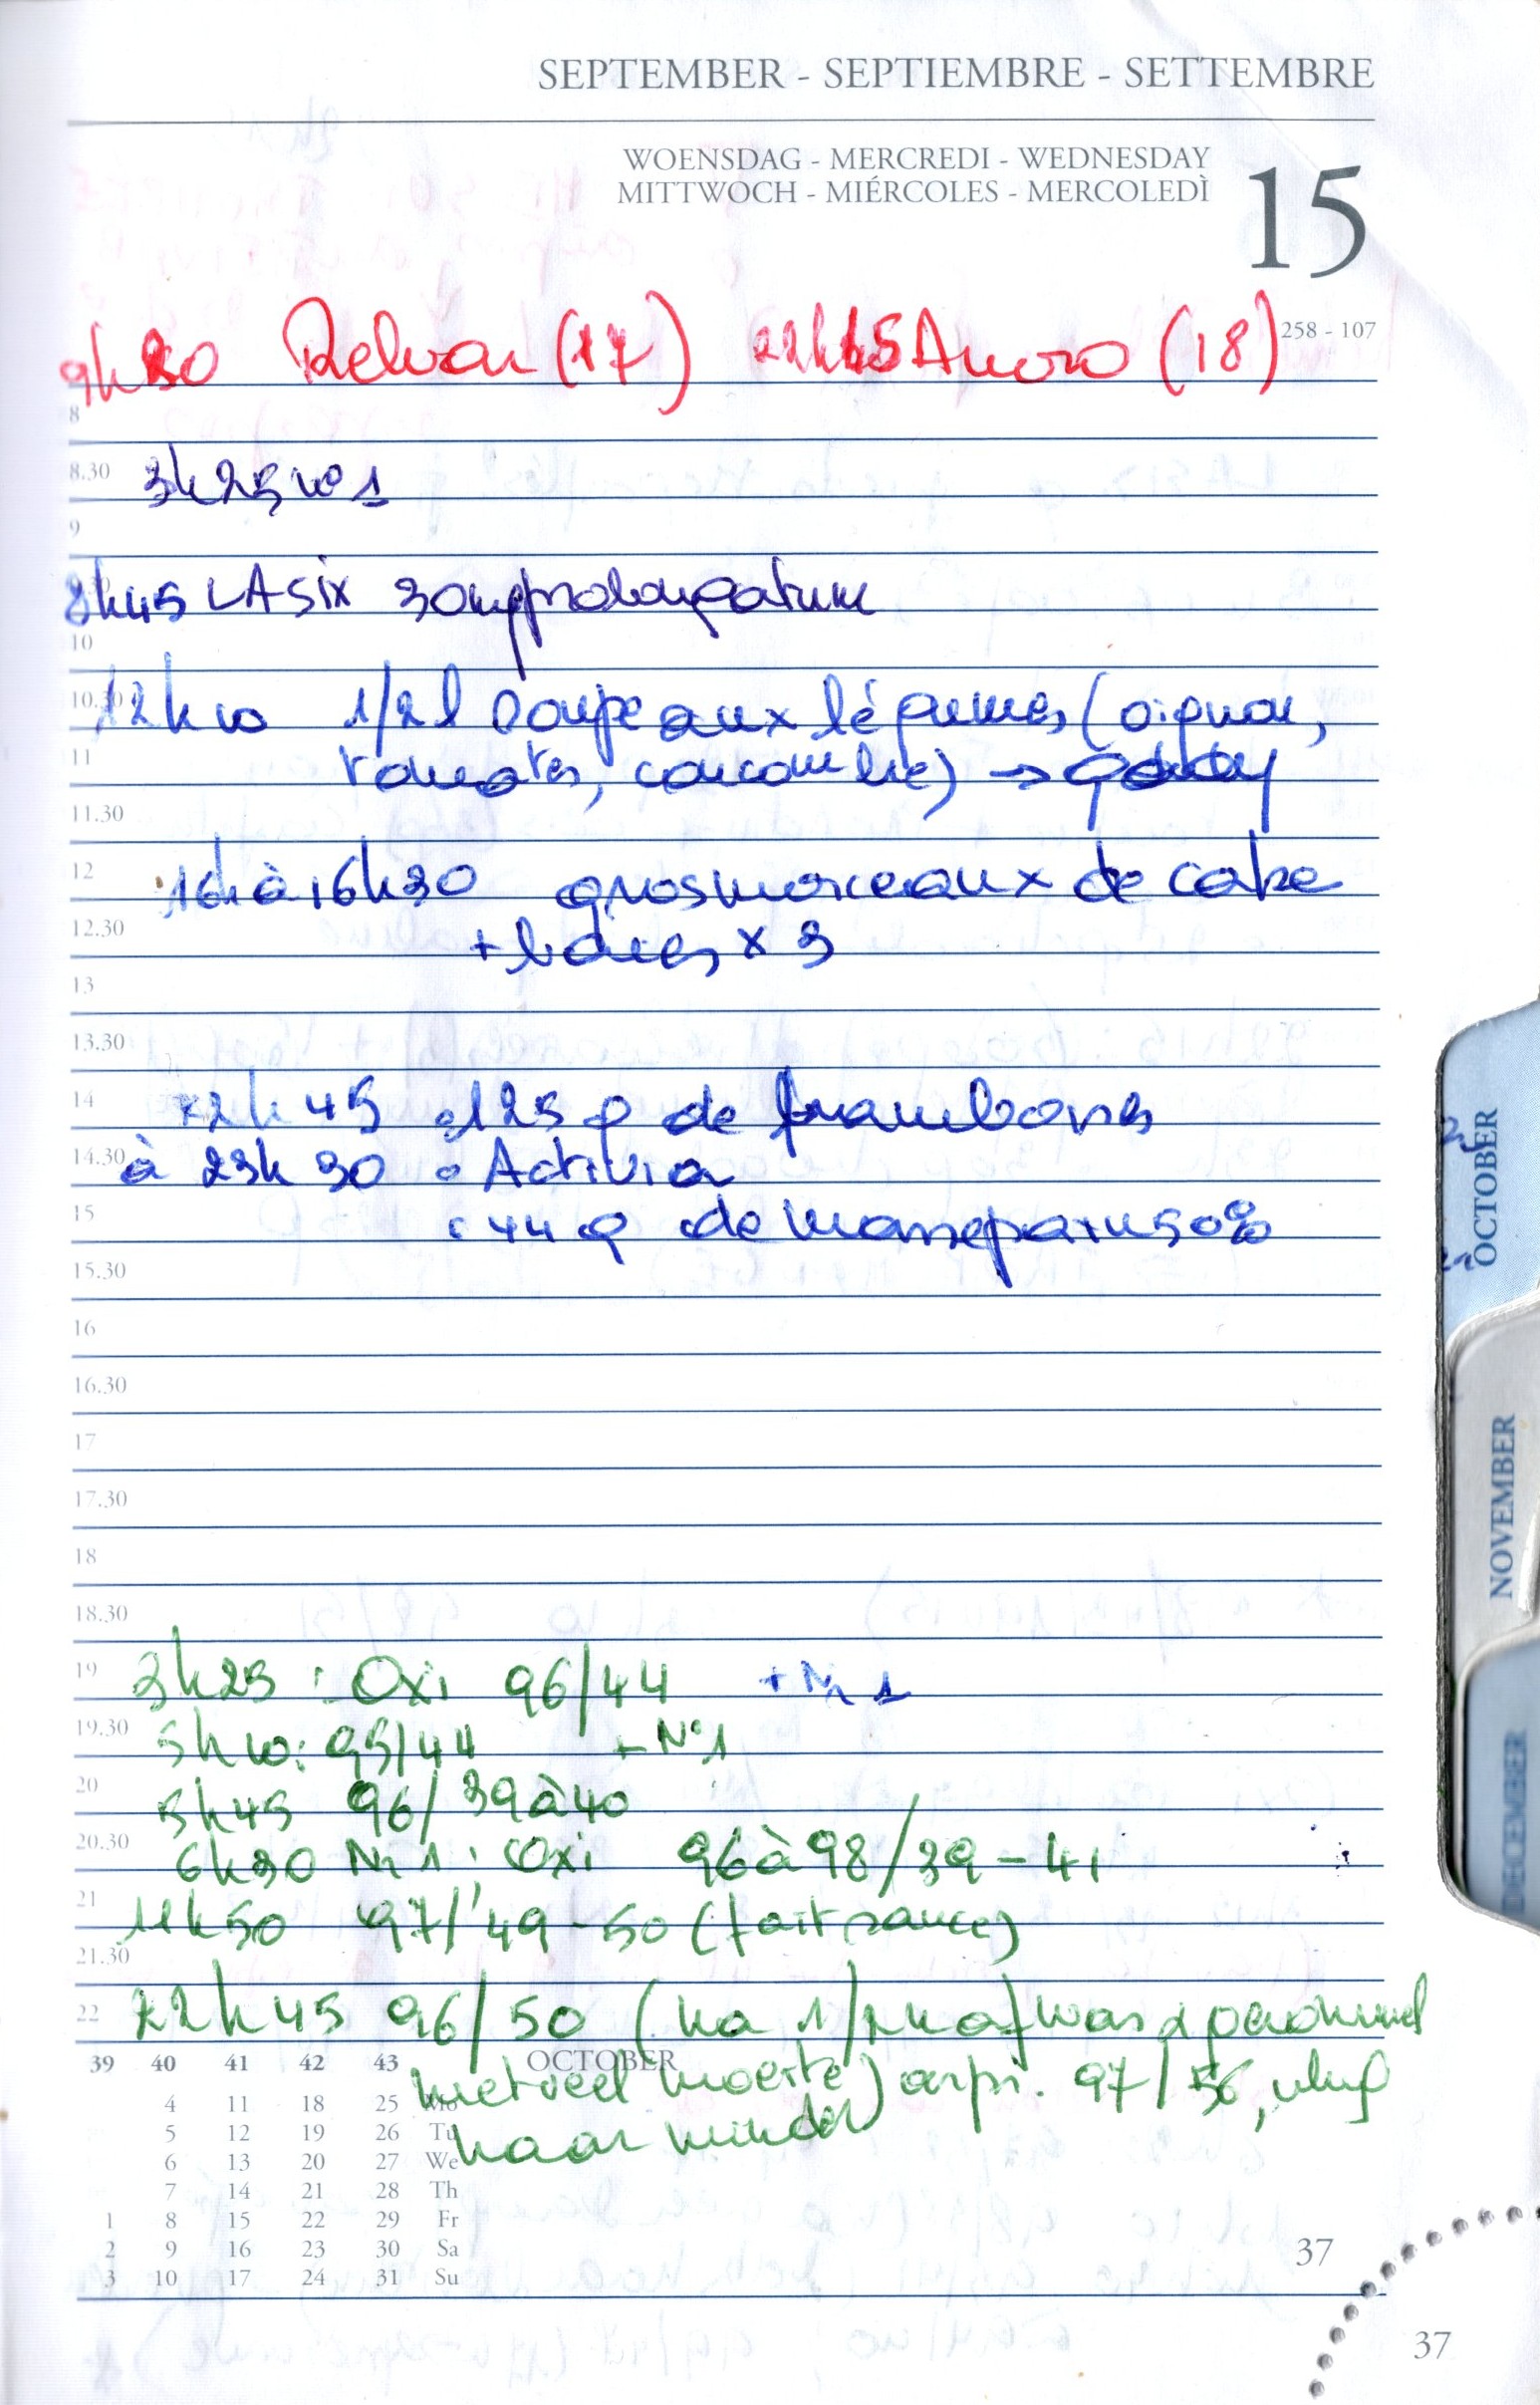 SEPTEMBER - SEPTIEMBRE - SETTEMBRE
WOENSDAG - MERCREDI - WEDNESDAY
MITTWOCH - MIÉRCOLES - MERCOLEDÌ
15
258 - 107
9h30 Relvar (17) 22h15 Anoro (18)
8
8.30 3h25 N° 1
9
8h45 LAsix 30mg prolongatum
10
10.30 12h10 1/2 l soupe aux légumes (oignon,
11 tomates, concombre) →
11.30
12 16h à 16h30 gros morceaux de cake
12.30 + baies x 3
13
13.30
14 22h45 125 g de framboises
14.30 à 23h30 Activia
15 44 g de massepain 50%
15.30
16
16.30
17
17.30
18
18.30
19 3h25 : Oxi 96/44 + Nr 1
19.30 5h10: 95/44 + N°1
20 5h45 96/39 à 40
20.30 6h30 Nr 1 : Oxi 96 à 98/39 - 41
21 11h50 97/49 - 50 (fait sauces)
21.30
22 22h45 96/50 (na 1/2h afwas
met veel moeite) 97/56, vlug
naar minder
39 40 41 42 43 OCTOBER
4 11 18 25 Mo
5 12 19 26 Tu
6 13 20 27 We
7 14 21 28 Th
1 8 15 22 29 Fr
2 9 16 23 30 Sa
3 10 17 24 31 Su
37
37
OCTOBER
NOVEMBER
DECEMBER